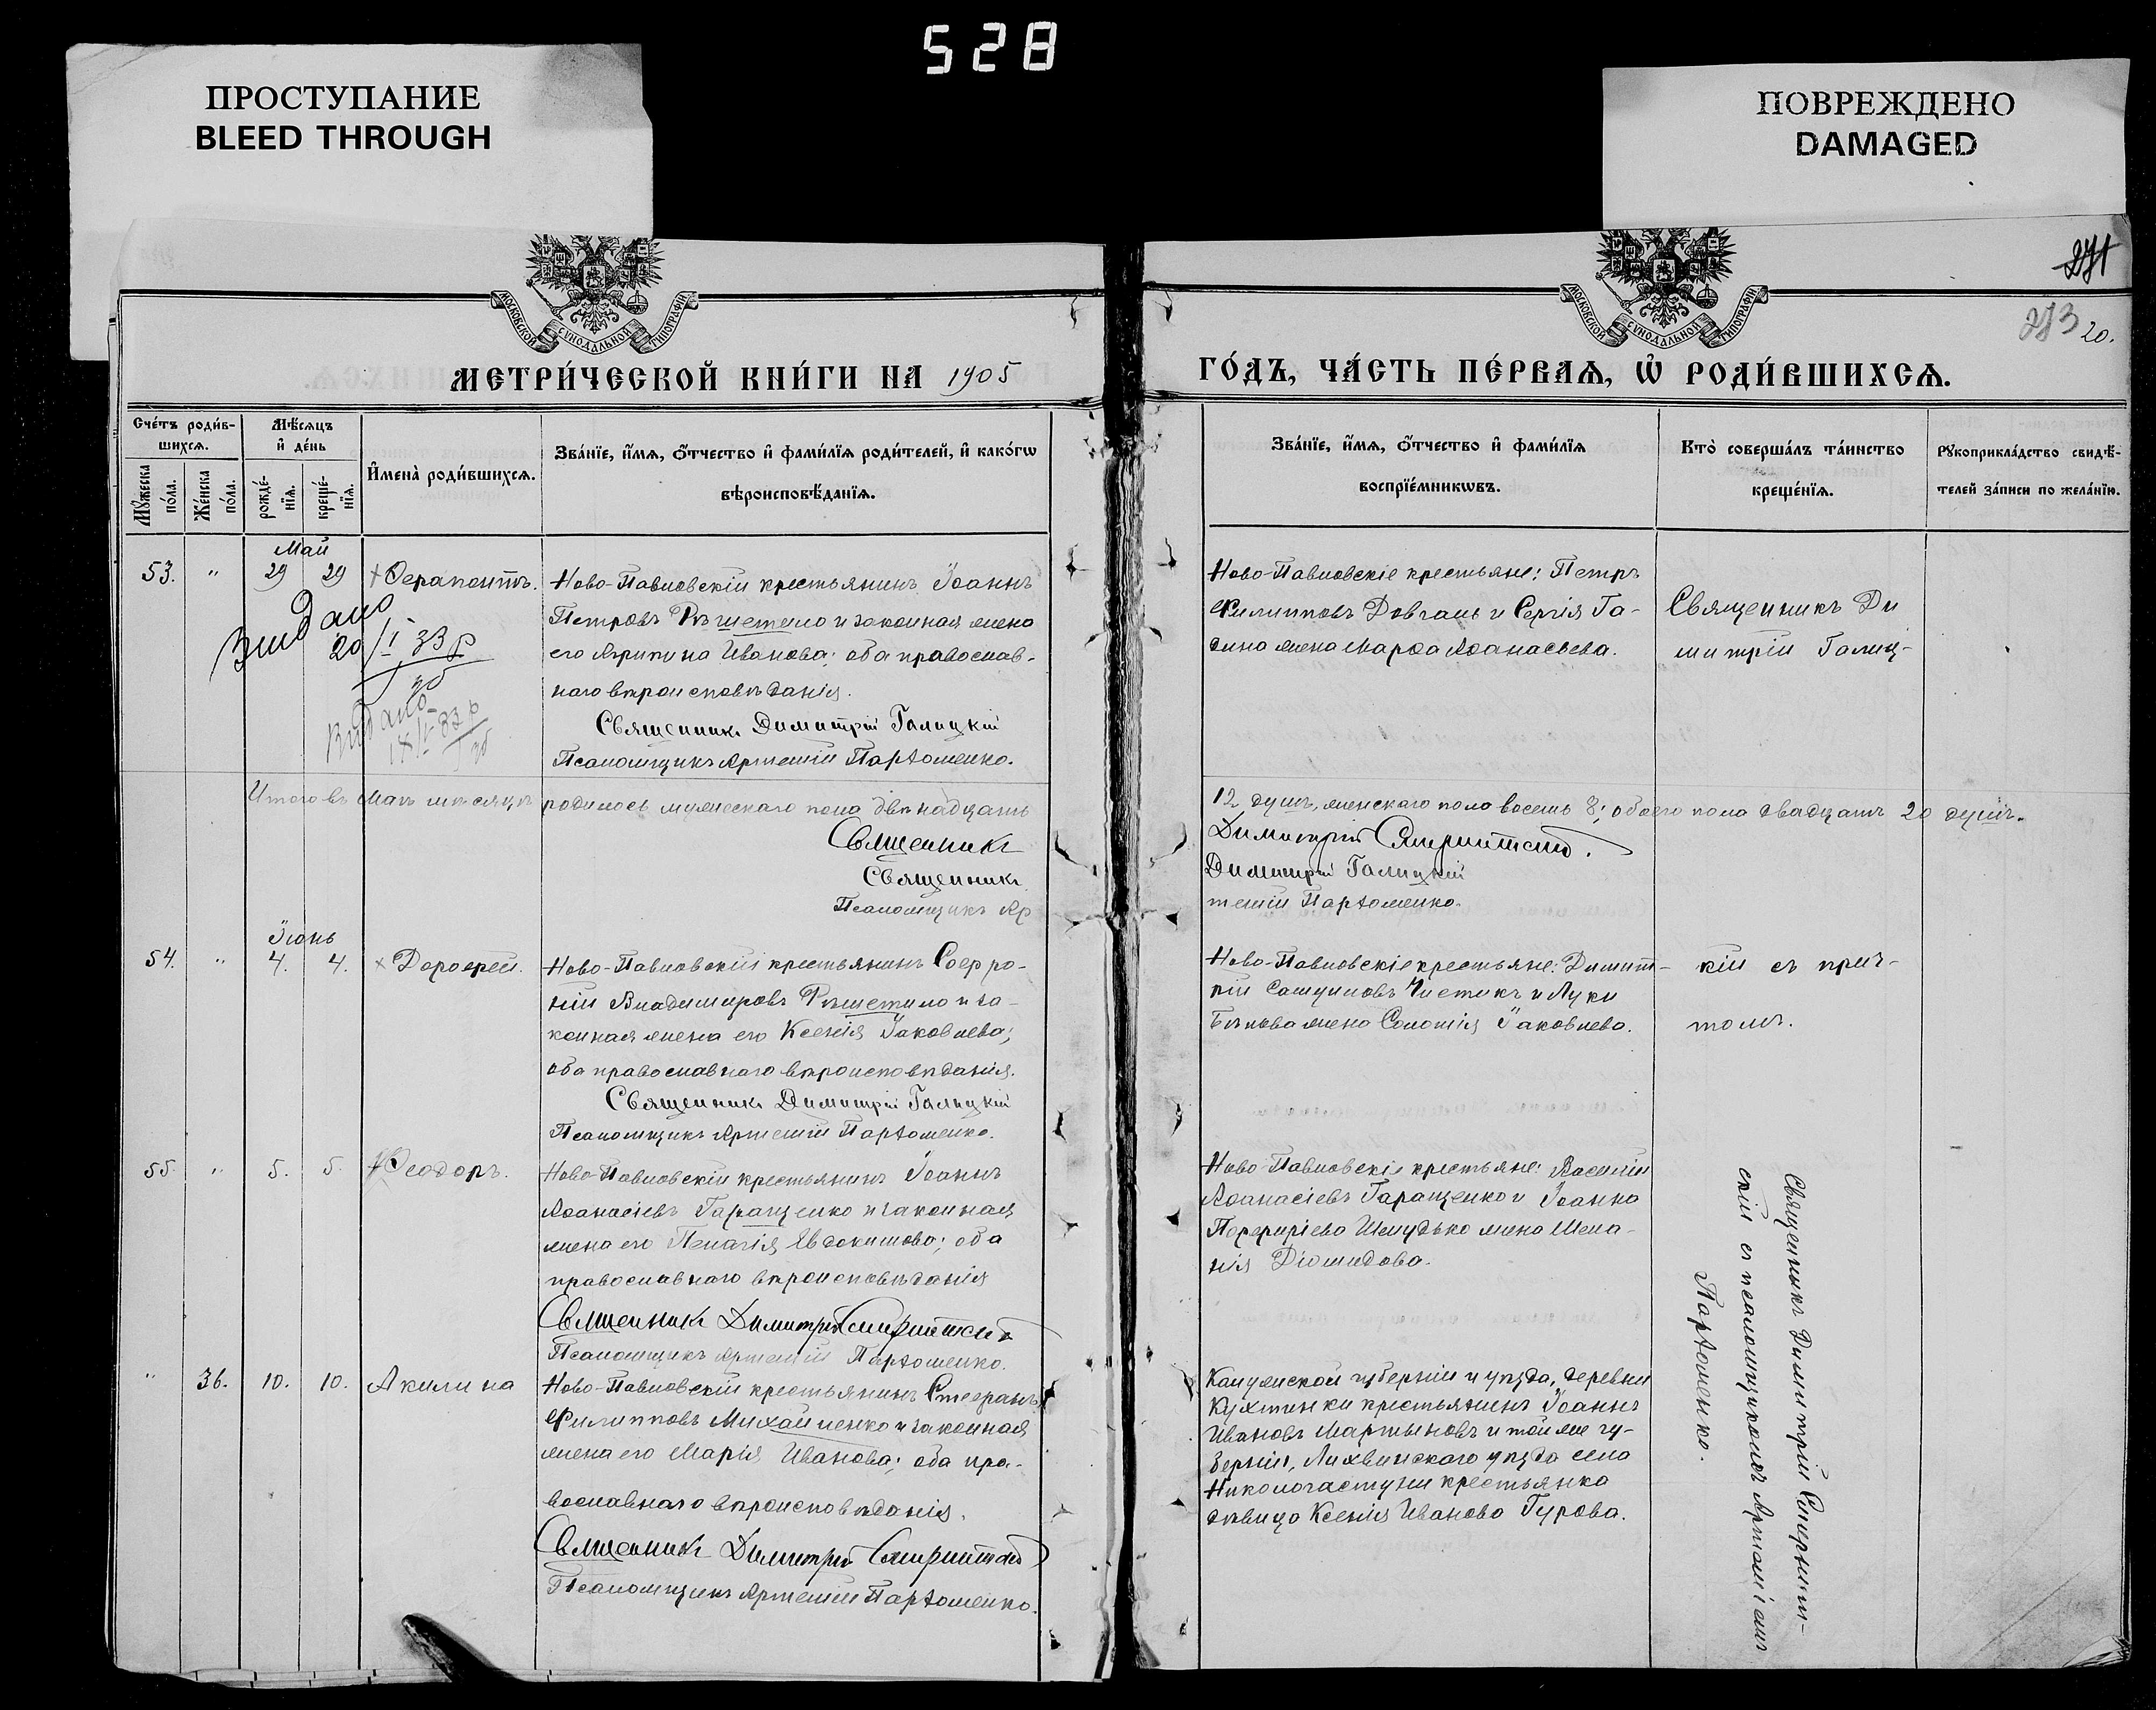 528
ПРОСТУПАНИЕ
BLEED THROUGH
ПОВРЕЖДЕНО
DAMAGED
МОСКОВСКОЙ СУНОДАЛЬНОЙ ТИПОГРАФІИ
МОСКОВСКОЙ СУНОДАЛЬНОЙ ТИПОГРАФІИ
271
273 20.
МЕТРИ́ЧЕСКОЙ КНИ́ГИ НА 1905
ГО́ДЪ, ЧА́СТЬ ПЕ́РВАѦ, Ѡ҆ РОДИ́ВШИХСѦ.
Сче́тъ роди́в-
шихсѧ.
Мꙋ́жеска по́ла.
Же́нска по́ла.
Мѣ́сѧцъ
и҆ де́нь
рожде́-
нїѧ.
креще́-
нїѧ.
И҆мена̀ роди́вшихсѧ.
Зва́нїе, и҆́мѧ, ѻ҆́тчество и҆ фами́лїѧ роди́телей, и҆ како́гѡ
вѣроисповѣ́данїѧ.
Зва́нїе, и҆́мѧ, ѻ҆́тчество и҆ фами́лїѧ
воспрїе́мникѡвъ.
Кто̀ соверша́лъ та́инство
креще́нїѧ.
Рꙋкоприкла́дство свидѣ́-
телей за́писи по жела́нїю.
Май
53. " 29 29 Ѳерапонтъ.
Ново-Павловскій крестьянинъ Іоаннъ
Петровъ Рѣшетило и законная жена
его Агрипина Иванова; оба православ-
наго вѣроисповѣданія.
Священникъ Димитрій Галицкій
Псаломщикъ Артемій Пархоменко.
Ново-Павловскіе крестьяне: Петръ
Филипповъ Довгаль и Сергія Га-
жена Марѳа Аѳанасьева.
Священникъ Ди
митрій Галиц-
Видано
20/I 33 р
Видано
Итого въ Маѣ мѣсяцѣ родилось мужескаго пола двѣнадцать
12 душъ, женскаго пола восемь 8; обоего пола двадцать 20 душъ.
Священникъ Димитрій
Священникъ Димитрій Галицкій
Псаломщикъ Артемій Пархоменко.
Іюнь
54. " 4. 4. Дороѳей.
Ново-Павловскій крестьянинъ Софро-
ній Владимировъ Рѣшетило и за-
конная жена его Ксенія Іаковлева;
оба православнаго вѣроисповѣданія.
Священникъ Димитрій Галицкій
Псаломщикъ Артемій Пархоменко.
Ново-Павловскіе крестьяне: Димит-
рій Самуиловъ Чистикъ и Луки
жена Соломія Іаковлева.
кій съ прич-
томъ.
55 " 5. 5. Ѳеодоръ.
Ново-Павловскій крестьянинъ Іоаннъ
Аѳанасіевъ Гаращенко и законная
жена его Пелагія Евдокимова; оба
православнаго вѣроисповѣданія
Священникъ Димитрій
Псаломщикъ Артемій Пархоменко.
Ново-Павловскіе крестьяне: Василій
Аѳанасіевъ Гаращенко и Іоанна
Порфиріева Шелудько жена Мела-
нія Діомидова.
Священникъ Димитрій
скій съ псаломщикомъ Артеміемъ
Пархоменко.
" 36. 10. 10. Акилина
Ново-Павловскій крестьянинъ Стефанъ
Филипповъ Михайленко и законная
жена его Марія Иванова; оба пра-
вославнаго вѣроисповѣданія.
Священникъ Димитрій
Псаломщикъ Артемій Пархоменко.
Калужской губерніи и уѣзда, деревни
Кухтинки крестьянинъ Іоаннъ
Ивановъ Мартыновъ и той же гу-
берніи, Лихвинскаго уѣзда села
крестьянка
дѣвица Ксенія Иванова Гурова.